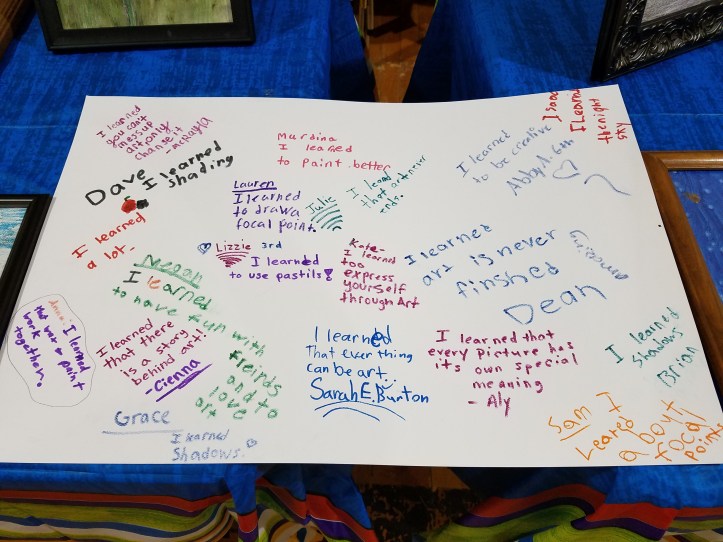 I learned
you can't
mess up
art only
change it
Dave I learned
Shading
I learned
a lot
Murdina
I learned
to paint better
Lauren
I learned
to draw a
focal point.
Julie
I learnd
that art never
ends.
I learned
to be creative
Abby A. 6th
Isaac
I Learnd
the night
sky
Lizzie 3rd
I learned
to use pastils!
Kate-
I learned
too
express
yourself
through Art
I learned
art is never
finshed
Dean
Megan
I learned
to have fun with
freirds
and to
love
art
I learned
that wax & paint
work
together.
I learned
that there
is a story
behind art!
-Cienna
I learned
That ever thing
can be art.
Sarah E. Burton
I learned that
every Picture has
it's own special
meaning
- Aly
I learned
Shadows
Brian
Grace
I learned
Shadows.
Sam I
Leared
about
focal
points